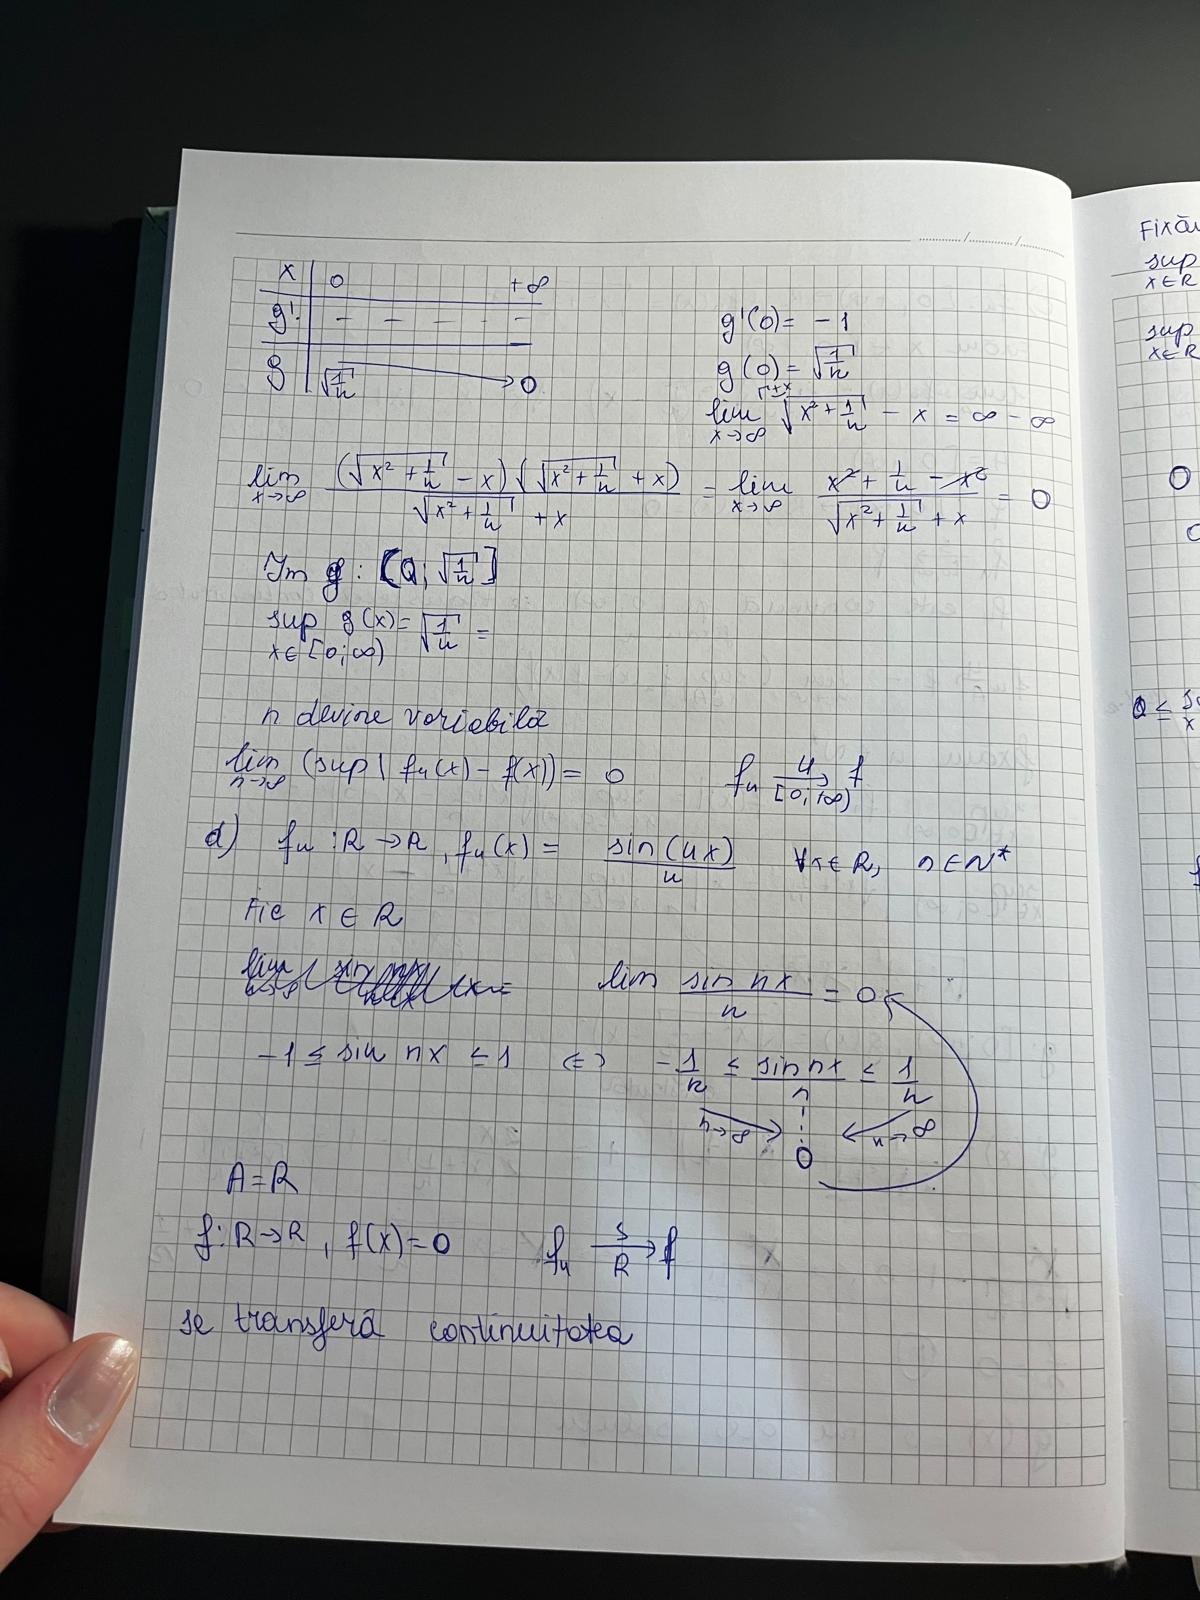 x 0 +∞
g' - - - - -
g √(1/n) → 0
g'(0) = -1
g(0) = √(1/n)
lim x→∞ √(x² + 1/n) - x = ∞ - ∞
lim x→∞ (√(x² + 1/n) - x)(√(x² + 1/n) + x) / (√(x² + 1/n) + x) = lim x→∞ (x² + 1/n - x²) / (√(x² + 1/n) + x) = 0
Im g : (0; √(1/n)]
sup g(x) = √(1/n) =
x∈[0;∞)
n devine variabilă
lim n→∞ (sup | fn(x) - f(x)) = 0 fn u→ [0;+∞) f
d) fn : R → R, fn(x) = sin(nx)/n ∀x∈R, n∈N*
Fie x ∈ R
lim sin nx / n = 0
-1 ≤ sin nx ≤ 1 ⇔ -1/n ≤ sin nx / n ≤ 1/n
n→∞ n→∞
0
A = R
f: R → R, f(x) = 0 fn s→ R f
se transferă continuitatea
Fixăn
sup
x∈R
sup
x∈R
0
0 ≤
x